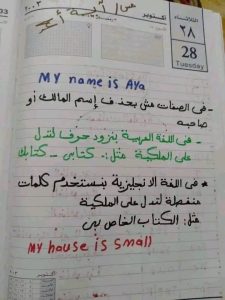 ٢٠٠٣
أكتوبر
الثلاثاء
٢٨
28
Tuesday
My name is Aya
- فى الصفات مش بحذف إسم المالك أو
صاحبه
- فى اللغة العربية بنزود حرف لتدل
على الملكية مثل: كتابى - كتابك
* فى اللغة الانجليزية بنستخدم كلمات
منفصلة لتدل على الملكية
مثل: الكتاب الخاص بى
My house is small